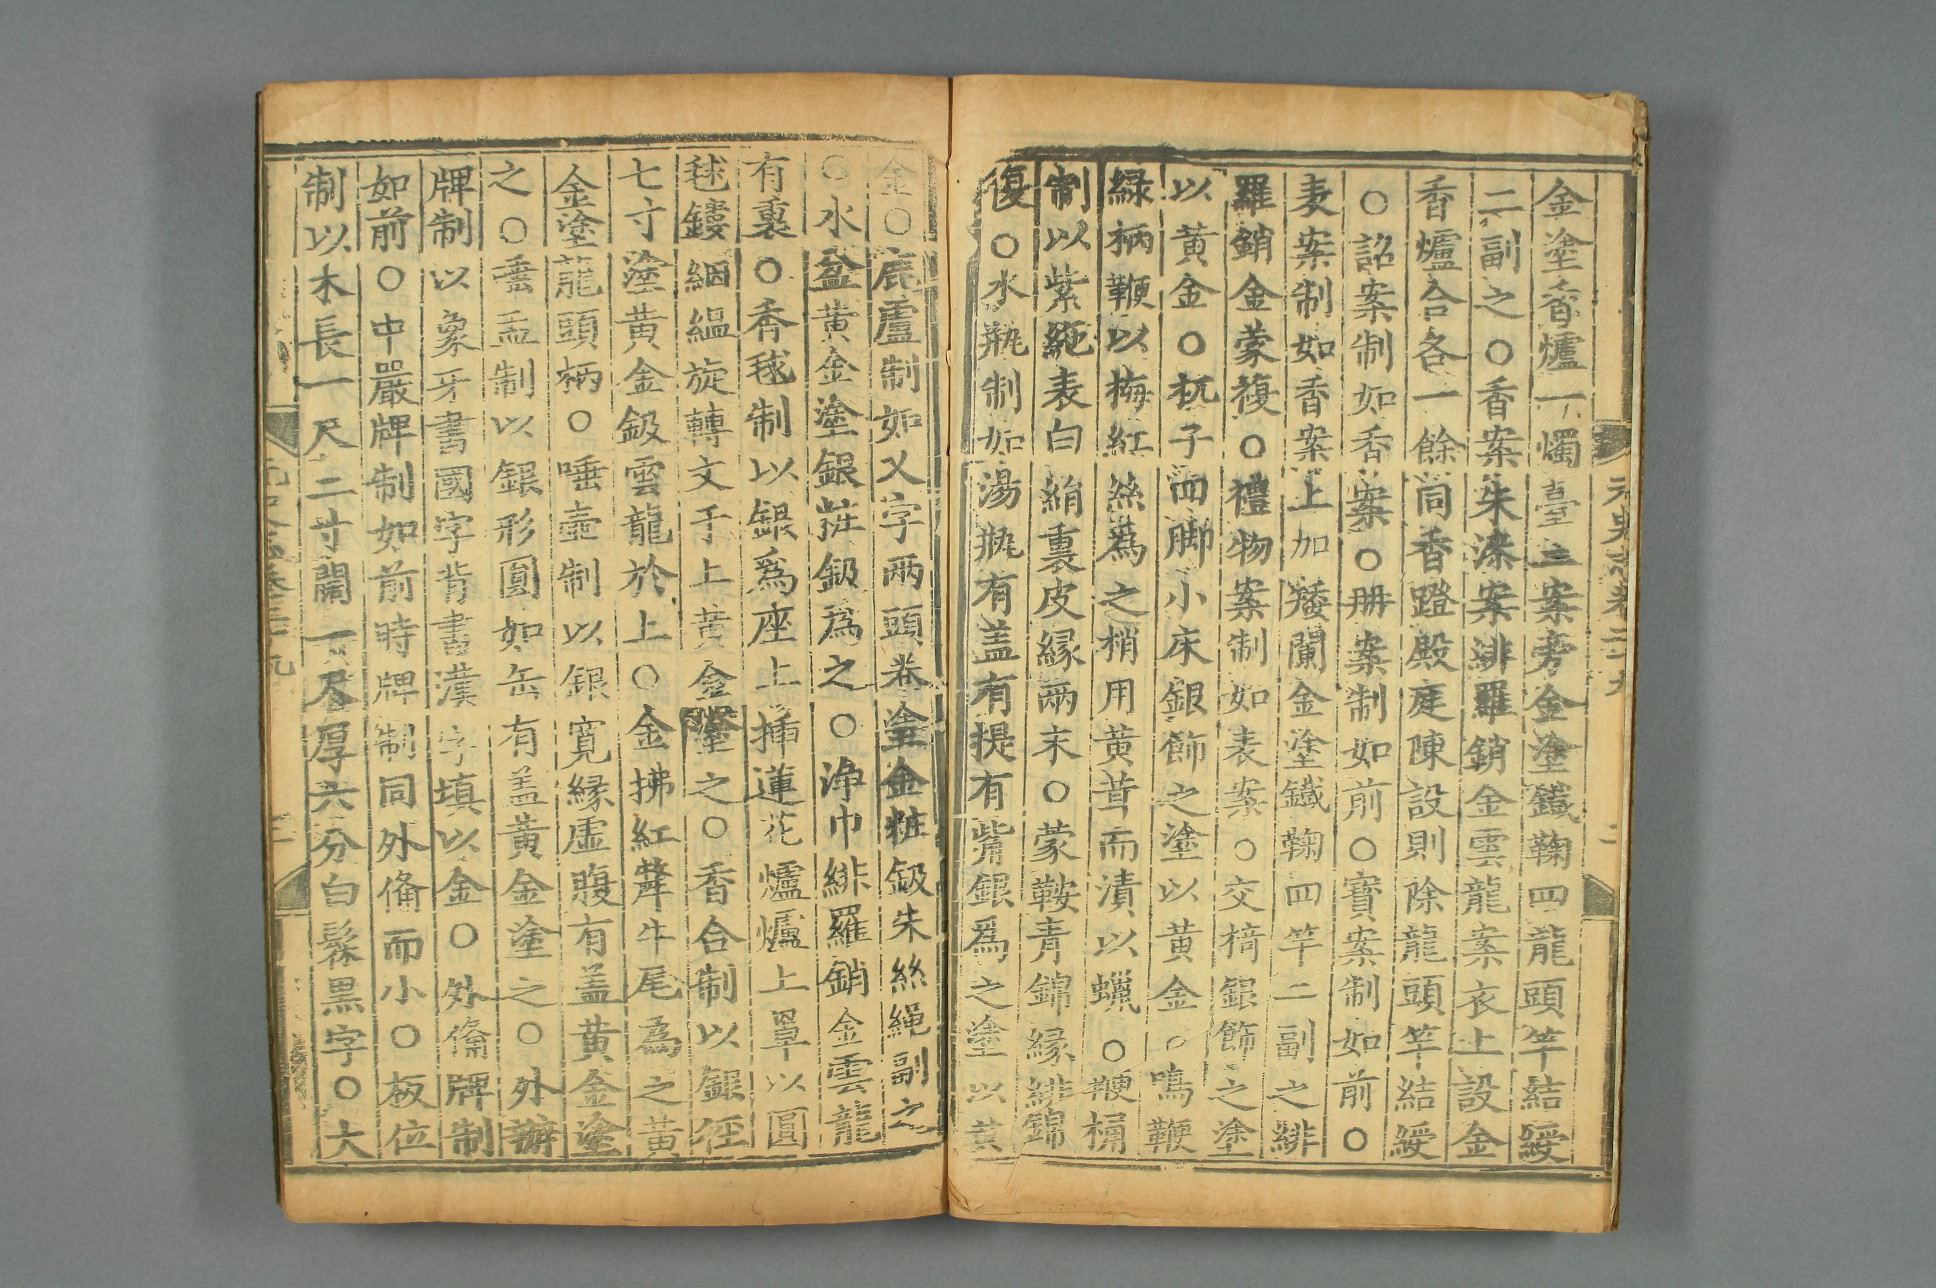 金塗香爐一燭臺二案旁金塗鐵鞠四龍頭竿結綬
二副之○香案朱漆案緋羅銷金雲龍案衣上設金
香爐合各一餘同香蹬殿庭陳設則除龍頭竿結綬
○詔案制如香案○册案制如前○寶案制如前○
表案制如香案上加矮闌金塗鐵鞠四竿二副之緋
羅銷金蒙複○禮物案制如表案○交椅銀飾之塗
以黄金○杌子四脚小床銀飾之塗以黄金○鳴鞭
緑柄鞭以梅紅絲爲之梢用黄茸而漬以蠟○鞭桶
制以紫絁表白絹裏皮緣兩末○蒙鞍青錦緣緋錦
複○水瓶制如湯瓶有盖有提有觜銀爲之塗以黄
金○鹿盧制如乂字兩頭卷塗金粧鈒朱絲繩副之
○水盆黄金塗銀粧鈒爲之○淨巾緋羅銷金雲龍
有裏○香毬制以銀爲座上揷蓮花爐爐上罩以圓
毬鏤絪縕旋轉文于上黄金塗之○香合制以銀徑
七寸塗黄金鈒雲龍於上○金拂紅犛牛尾爲之黄
金塗龍頭柄○唾壺制以銀寛緣虚腹有盖黄金塗
之○唾盂制以銀形圓如缶有盖黄金塗之○外辦
牌制以象牙書國字背書漢字填以金○外備牌制
如前○中嚴牌制如前時牌制同外備而小○板位
制以木長一尺二寸闊一尺厚六分白髹黒字○大